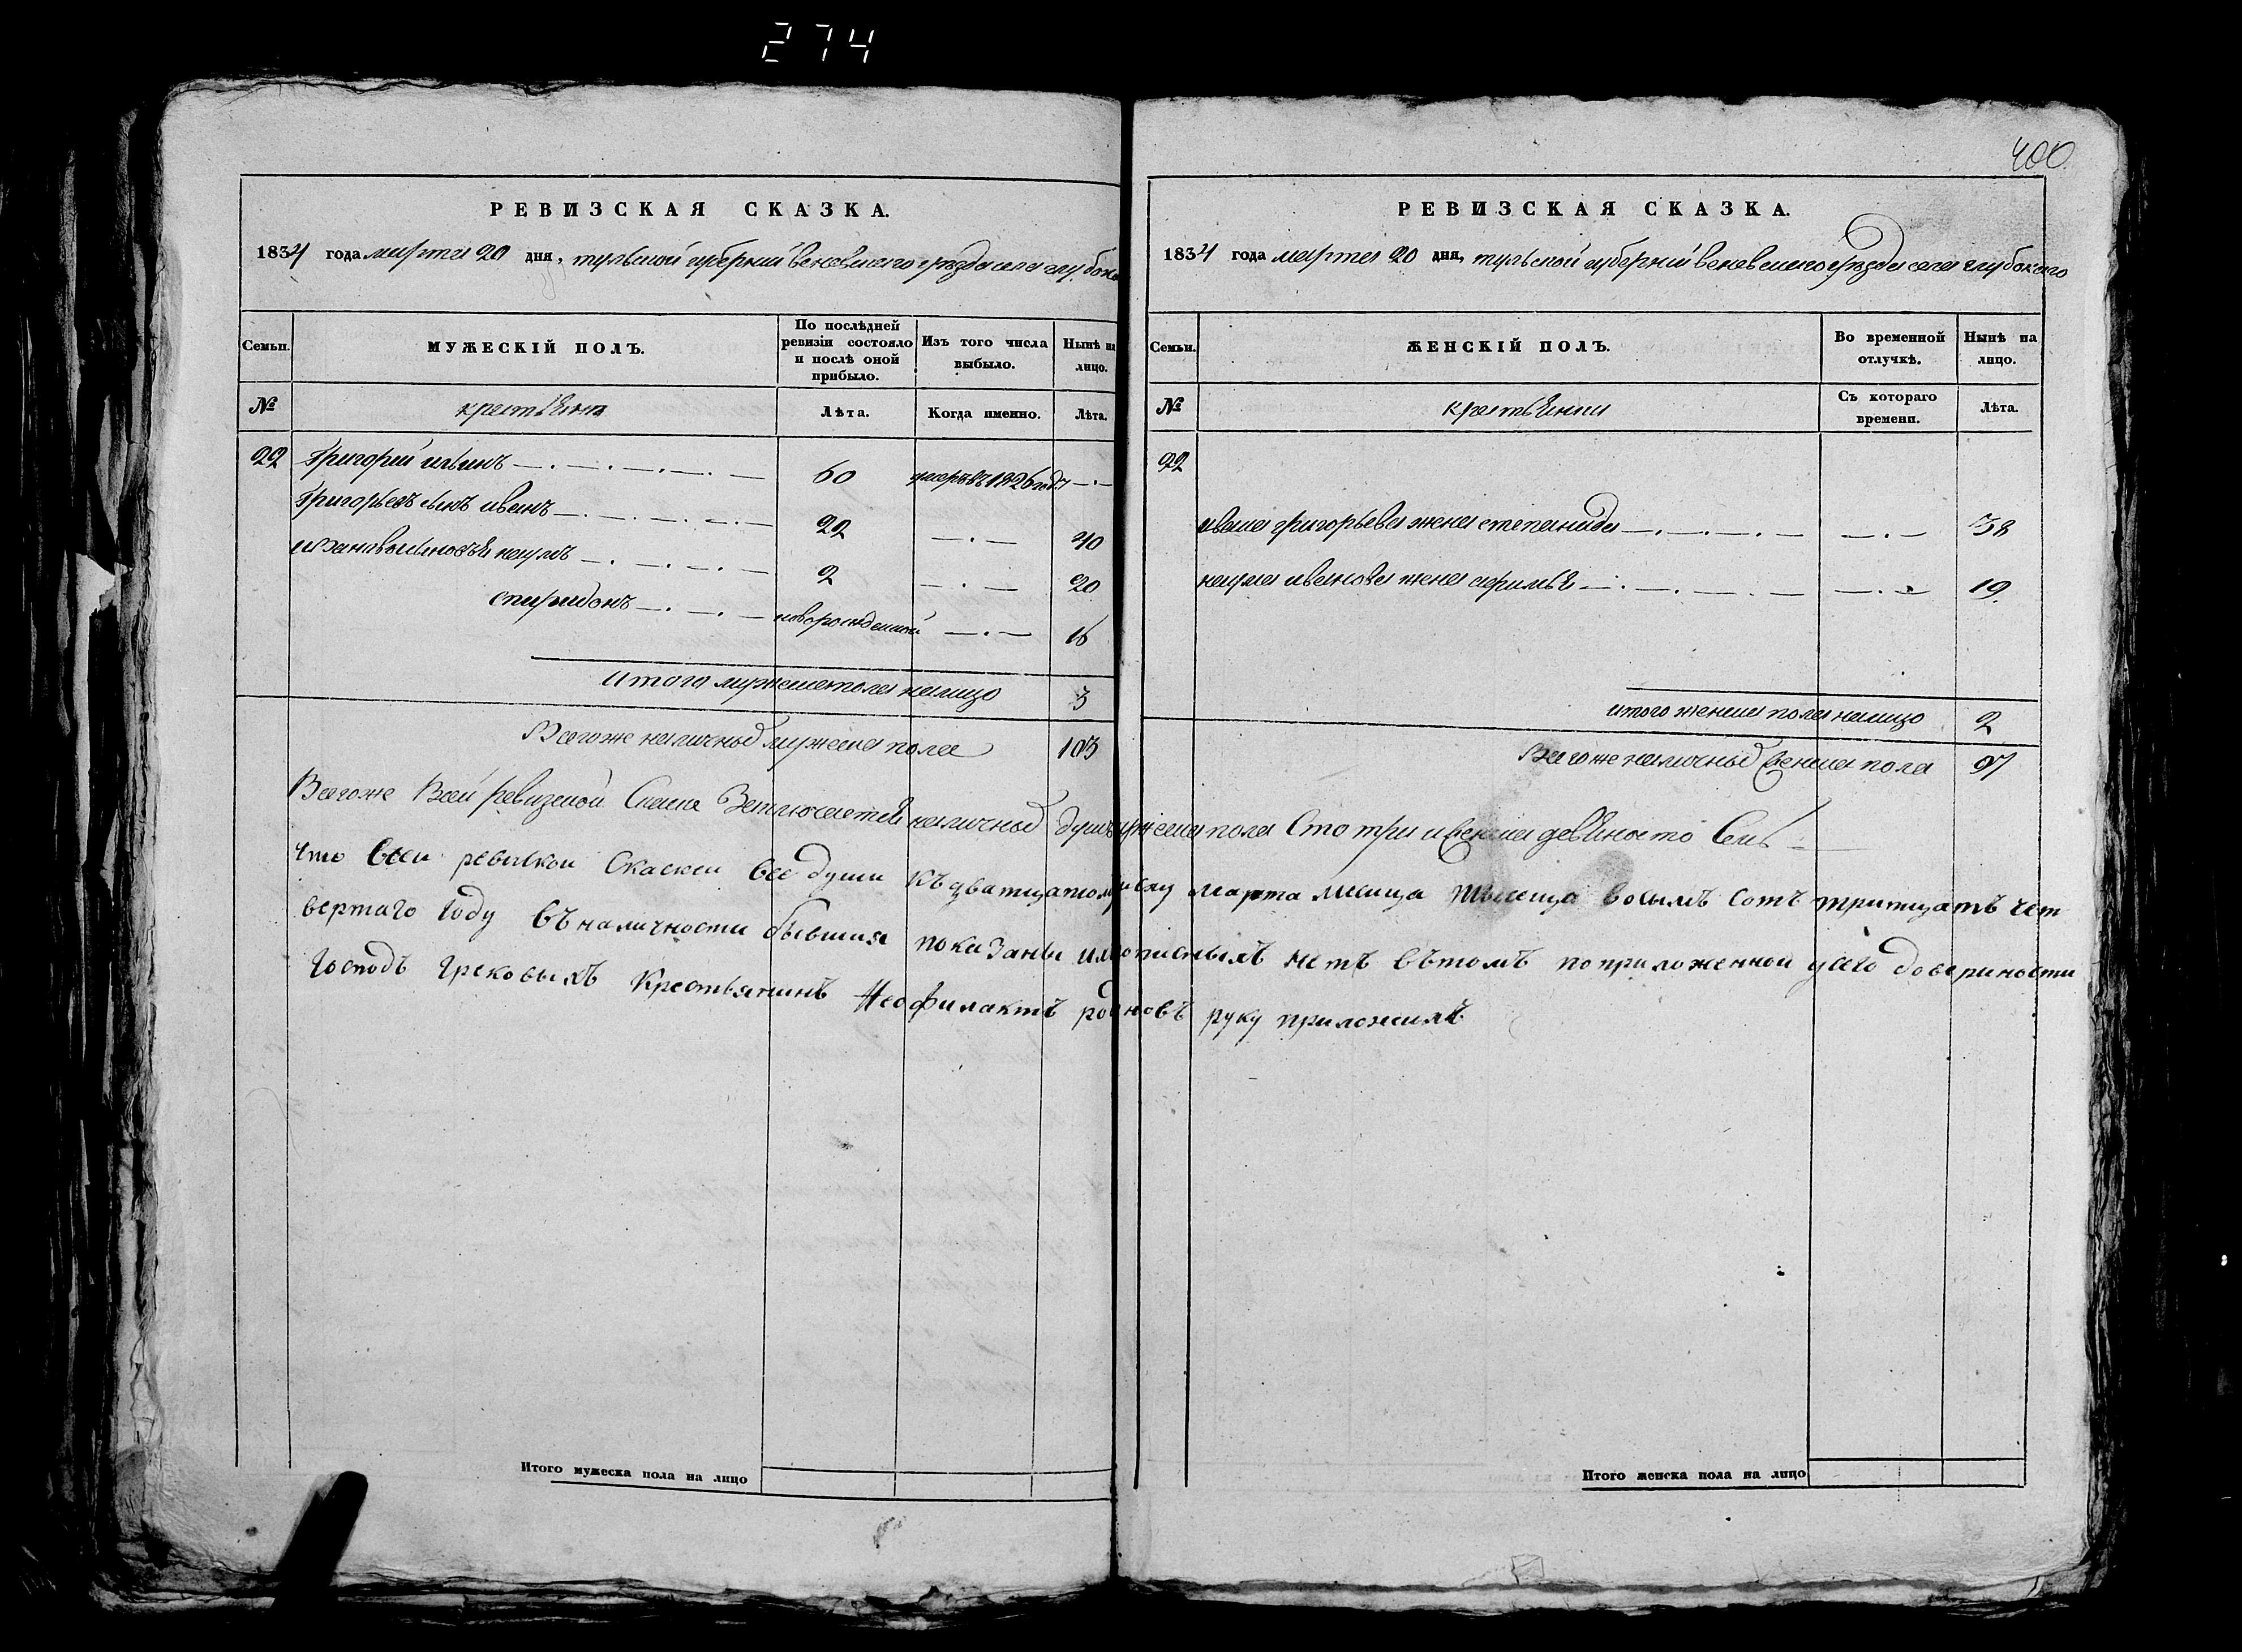 274
400
РЕВИЗСКАЯ СКАЗКА.
1834 года марта 20 дня, тульской губернии веневского уезда села глубоко
Семьи.
МУЖЕСКІЙ ПОЛЪ.
По послѣдней ревизіи состояло и послѣ оной прибыло.
Изъ того числа выбыло.
Нынѣ на лицо.
№
крестьяня
Лѣта.
Когда именно.
Лѣта.
22 Григорей ильинъ 60 умеръ въ 1826 году
Григорьевъ сынъ иванъ 22 40
ивановы сыновья наумъ 2 20
спиридонъ новорожденной 16
Итого мужеска пола налицо 3
Всегоже наличныхъ мужеска пола 103
РЕВИЗСКАЯ СКАЗКА.
1834 года марта 20 дня, тульской губернии веневскаго уезда села глубокаго
Семьи.
ЖЕНСКІЙ ПОЛЪ.
Во временной отлучкѣ.
Нынѣ на лицо.
№
крестьянки
Съ котораго времени.
Лѣта.
22
ивана григорьева жена степанида 38
наума иванова жена афимья 19
итого женска пола налицо 2
Всегоже наличныхъ женска пола 97
Всегоже Всей ревизской Скаске Заключается наличныхъ душъ мужеска пола Сто три иженска девяносто Семь
что всеи ревиской Скаскеи все души къ дватцатому числу марта месица тысеща восымъ сотъ тритцатъ чет
вертаго году въ наличности бывшия показаны и прописныхъ нетъ вътомъ поприложенной у сего довериности
Господъ Грековыхъ Крестьянинъ Феофилактъ руку приложилъ
Итого мужеска пола на лицо
Итого женска пола на лицо